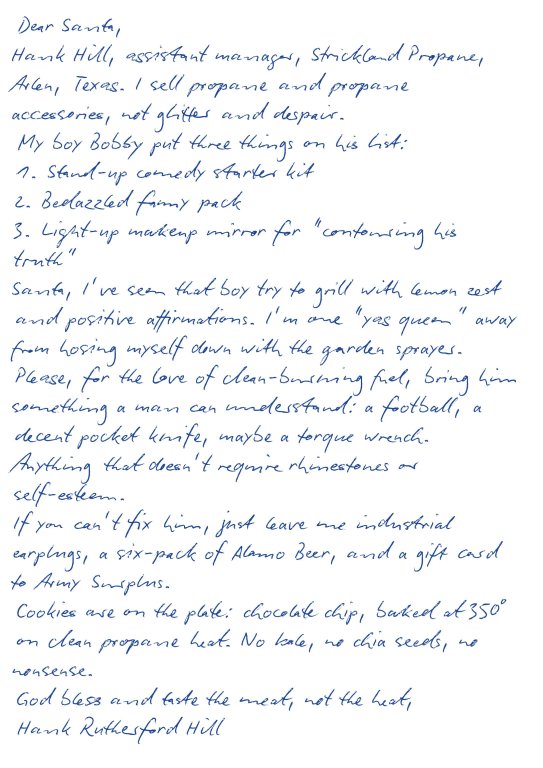 Dear Santa,
Hank Hill, assistant manager, Strickland Propane,
Arlen, Texas. I sell propane and propane
accessories, not glitter and despair.
My boy Bobby put three things on his list:
1. Stand-up comedy starter kit
2. Bedazzled fanny pack
3. Light-up makeup mirror for "contouring his
truth"
Santa, I've seen that boy try to grill with lemon zest
and positive affirmations. I'm one "yas queen" away
from hosing myself down with the garden sprayer.
Please, for the love of clean-burning fuel, bring him
something a man can understand: a football, a
decent pocket knife, maybe a torque wrench.
Anything that doesn't require rhinestones or
self-esteem.
If you can't fix him, just leave me industrial
earplugs, a six-pack of Alamo Beer, and a gift card
to Army Surplus.
Cookies are on the plate: chocolate chip, baked at 350°
on clean propane heat. No kale, no chia seeds, no
nonsense.
God bless and taste the meat, not the heat,
Hank Rutherford Hill